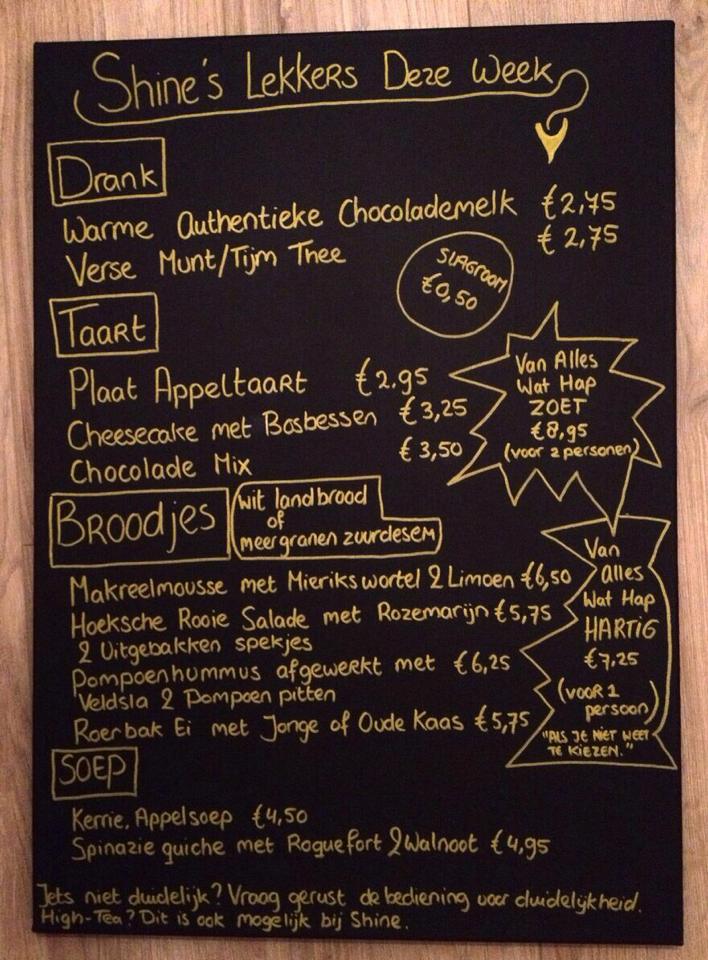 Shine's Lekkers Deze Week
Drank
Warme Authentieke Chocolademelk €2,75
Verse Munt/Tijm Thee € 2,75
SLAGROOM
€0,50
Taart
Plaat Appeltaart €2.95
Cheesecake met Bosbessen €3,25
Chocolade Mix €3,50
Van Alles
Wat Hap
ZOET
€8,95
(voor 2 personen)
BROODJES
wit landbrood
of
meergranen zuurdesem
Makreelmousse met Mierikswortel & Limoen €6,50
Hoeksche Rooie Salade met Rozemarijn €5,75
& Uitgebakken spekjes
Pompoenhummus afgewerkt met €6,25
Veldsla & Pompoen pitten
Roerbak Ei met Jonge of Oude Kaas €5,75
Van
Alles
Wat Hap
HARTIG
€7,25
(voor 1
persoon)
"ALS JE NIET WEET
TE KIEZEN."
SOEP
Kerrie, Appelsoep €4,50
Spinazie quiche met Roquefort & Walnoot €4,95
Iets niet duidelijk? Vraag gerust de bediening voor duidelijkheid.
High-Tea? Dit is ook mogelijk bij Shine.